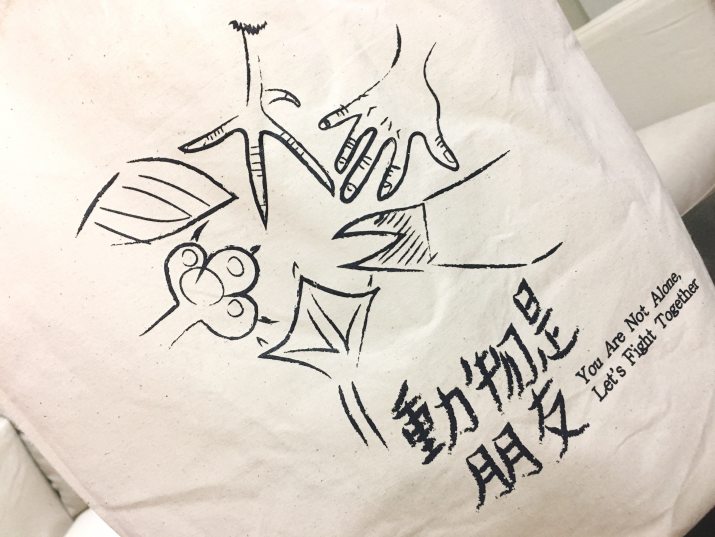 動物是
朋友
You Are Not Alone,
Let's Fight Together